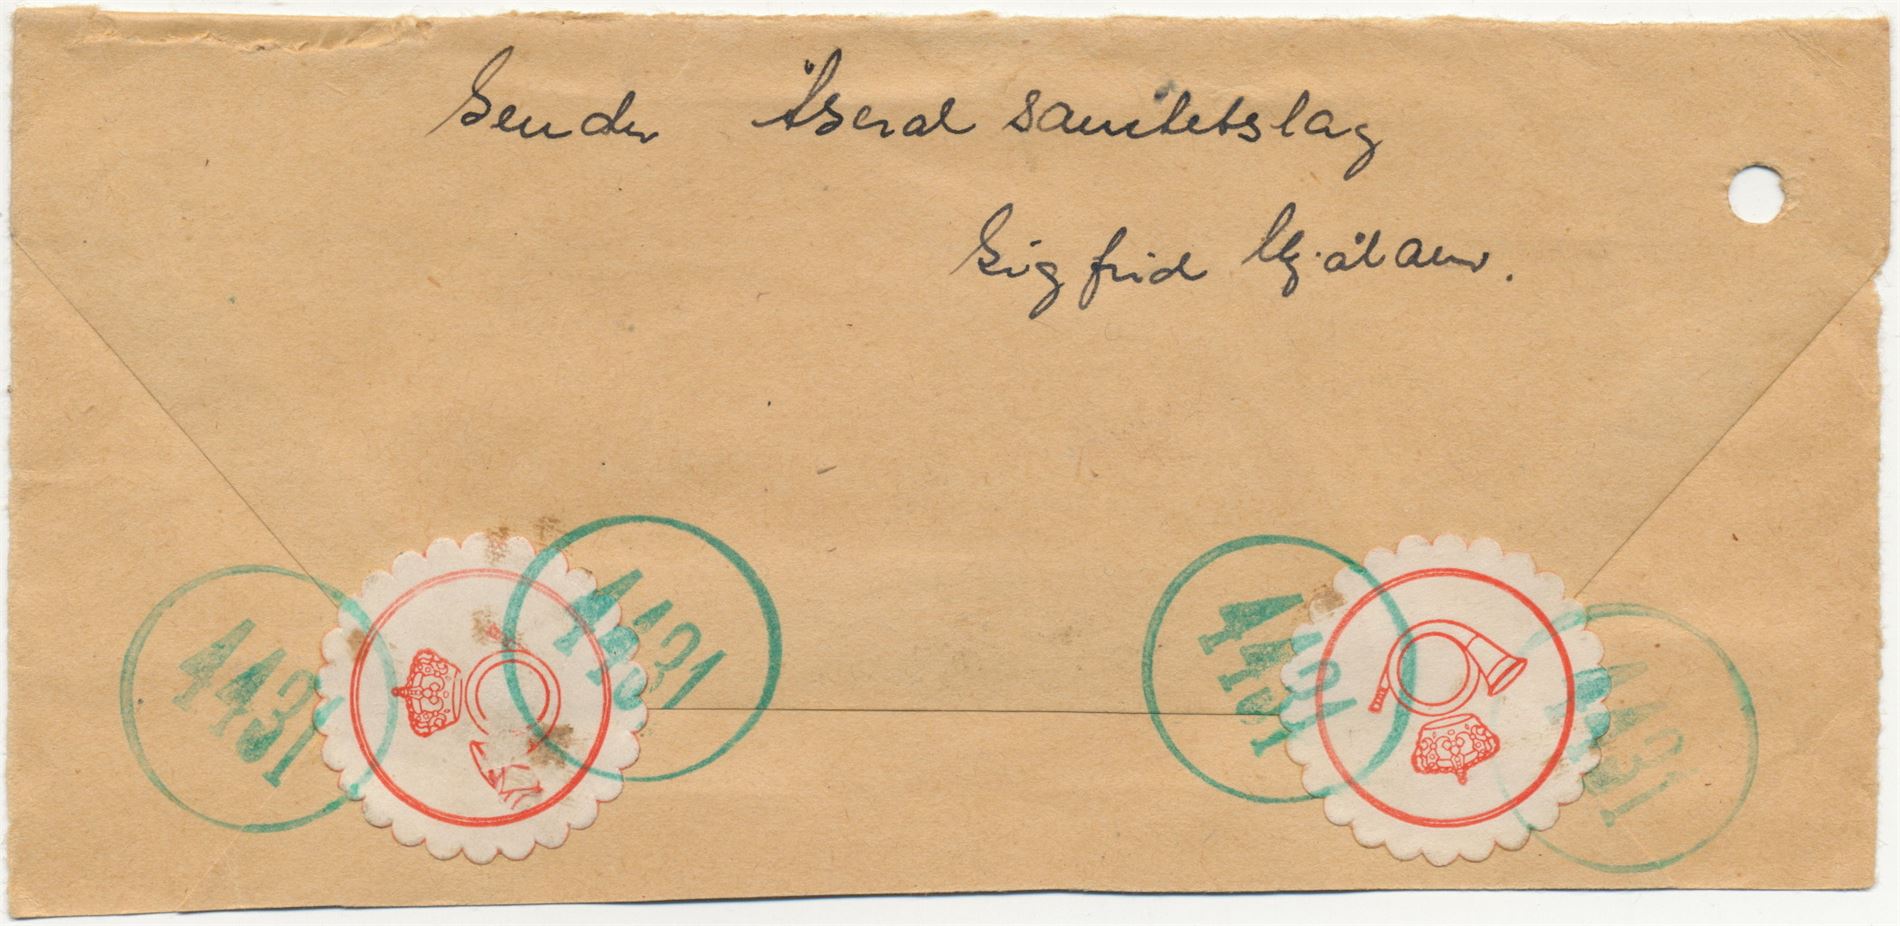 Sender Åseral sanitetslag
Sigfrid
4431
4431
4431
4431